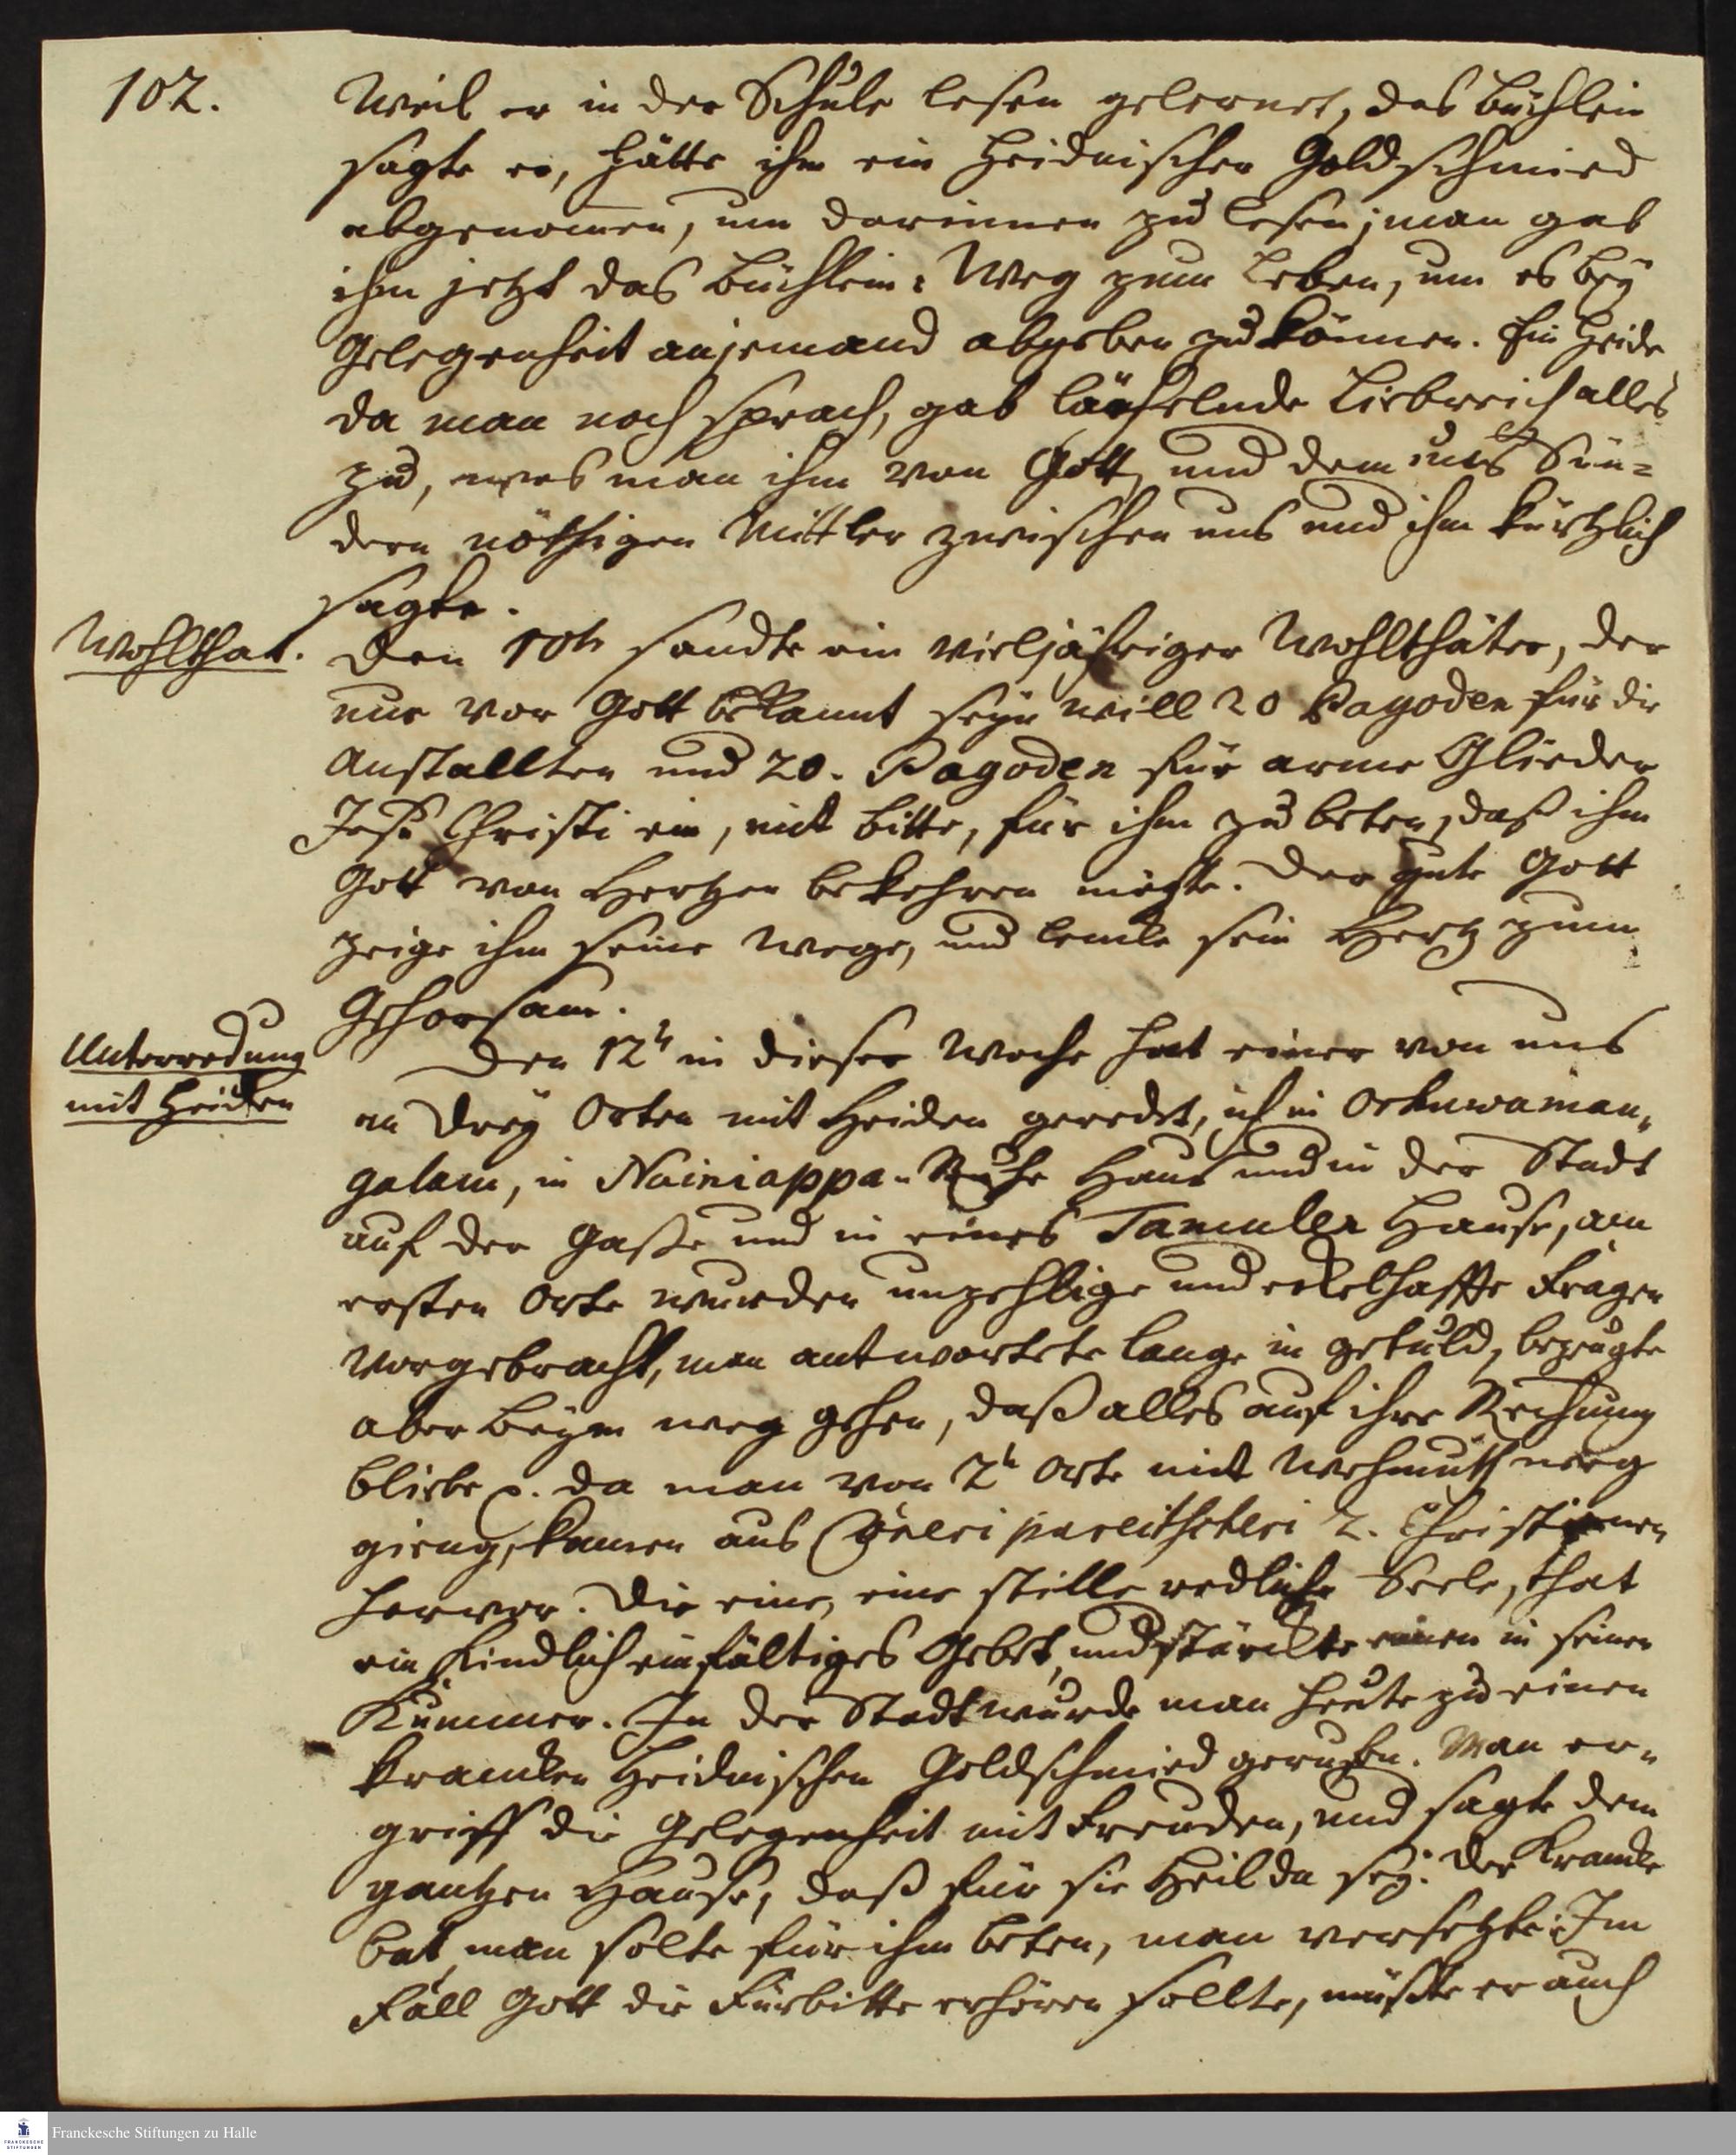 102.
Weil er in der Schule lesen gelernet, das büchlein
sagte er, hätte ihm ein Heidnischer Goldschmied
abgenomen, um darinnen zu lesen; man gab
ihm jetzt das büchlein: Weg zum Leben, um es bey
Gelegenheit an jemand abgeben zu können. Ein Heide
da man noch sprach, gab lächelnde Liebreich alles
zu, was man ihm von Gott, und dem uns Sün=
dern nöthigen Mittler zwischen uns und ihm kürtzlich
sagte.
Wohlthat.
Den 10th sandte ein vieljähriger Wohlthäter, der
nur vor Gott bekannt seyn will 20 Pagoden für die
Anstallten und 20. Pagoden für arme Glieder
Jesu Christi ein, mit bitte, für ihm zu beten, daß ihm
Gott von Hertzen bekehren möchte. Der gute Gott
zeige ihm seine Wege, und lencke sein Hertz zum
Gehorsam.
Unterredung
mit Heiden
Den 12t in dieser Woche hat einer von uns
an drey Orten mit Heiden geredet, ich in Orhuwaman„
galam, in Nainiappa-Ruhe Haus und in der Stadt
auf der Gasse und in eines Tamulen Hause, am
ersten Orte wurden unzehlige und eckelhaffte Fragen
vorgebracht, man antwortete lange in getuld, bezeugte
aber beym weg gehen, daß alles auf ihre Rechnung
bliebe p. da man von 2t Orte mit Wehmuth weg
gieng, kamen aus 2. Christinnen
hervor. Die eine, eine stille redliche Seele, that
ein Kindlich einfältiges Gebet, und stärckte einen in seiner
Kummer. In der Stadt wurde man heute zu einen
krancken Heidnischen Goldschmied gerufen. Man er„
griff die Gelegenheit mit Freuden, und sagte dem
gantzen Hause, daß für sie Heil da sey. Der Krancke
bat, man solte für ihm beten, man versetzte: Im
Fall Gott die Fürbitte erhören sollte, müßte er auch
Franckesche Stiftungen zu Halle
FRANCKESCHE
STIFTUNGEN